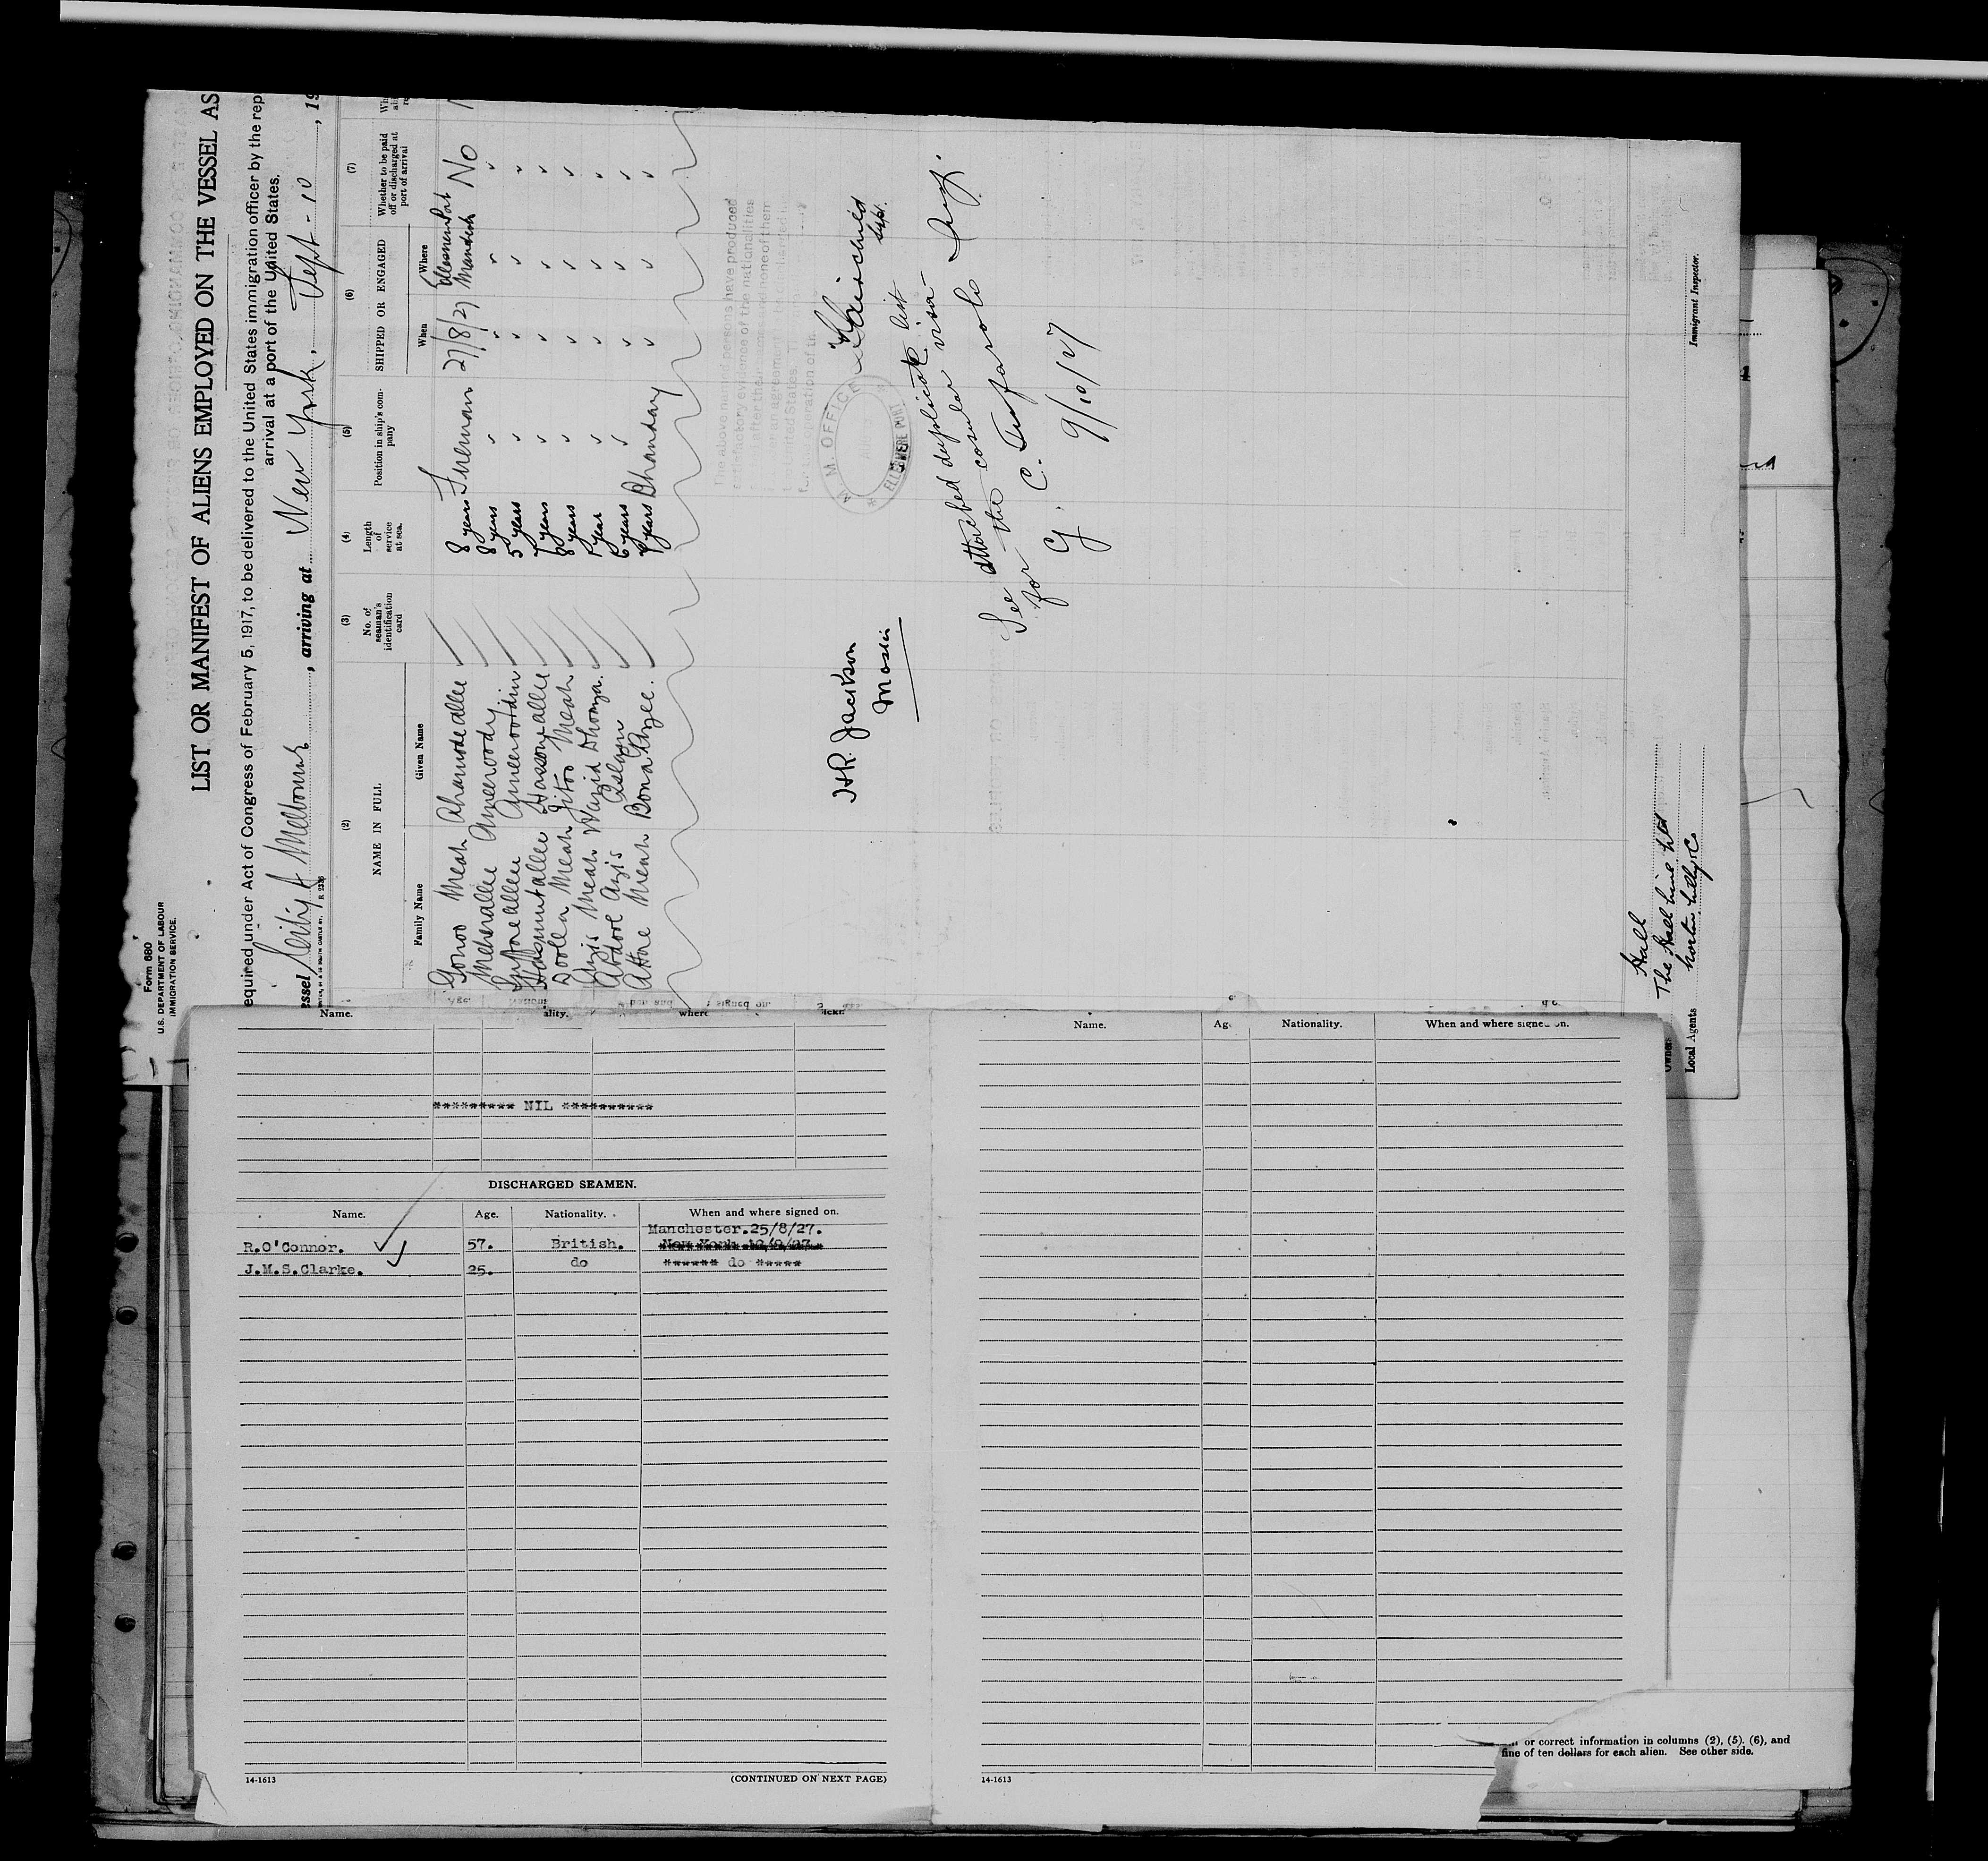 Form 680
U.S. DEPARTMENT OF LABOUR
IMMIGRATION SERVICE.
LIST OR MANIFEST OF ALIENS EMPLOYED ON THE VESSEL AS
equired under Act of Congress of February 5, 1917, to be delivered to the United States immigration officer by the rep
arrival at a port of the United States.
essel City of Melbourne, arriving at New York, Sept - 10, 19
(2) (3) (4) (5) (6) (7)
NAME IN FULL
Family Name Given Name
No. of seaman's identification card
Length of service at sea.
Position in ship's company
SHIPPED OR ENGAGED
When Where
Whether to be paid off or discharged at port of arrival
Gonoo Meah Ahamode allee 8 years Fireman 27/8/27 Ellesmere Port Manchester No
Meherallee Ameeroody 8 years
allee Ameerooddin 5 years
Hasmutallee Hassomeallee 7 years
Doolla Meah Jitoo Meah 8 years
Azis Meah Wazid Dhonza. 1 year
Abdool Azis Islam 6 years
Attore Meah Bona Gazee. 9 years Bhandary
The above named persons have produced
satisfactory evidence of the nationalities
M. M. OFFICE
ELLESMERE PORT
H.R. Jackson
Master
Supt.
See attached duplicate list
for the consular visa
C. Tufarolo Insp.
9/10/27
Immigrant Inspector.
Hall
Owners The Hall Line Ltd
Local Agents Norton Lilly & C.
Name. ality. where
********* NIL **********
DISCHARGED SEAMEN.
Name. Age. Nationality. When and where signed on.
Manchester.25/8/27.
R.O'Connor. 57. British. New York 12/9/27.
J.M.S.Clarke. 25. do ****** do *****
14-1613 (CONTINUED ON NEXT PAGE)
Name. Ag Nationality. When and where signed on.
14-1613
or correct information in columns (2), (5). (6), and
fine of ten dollars for each alien. See other side.